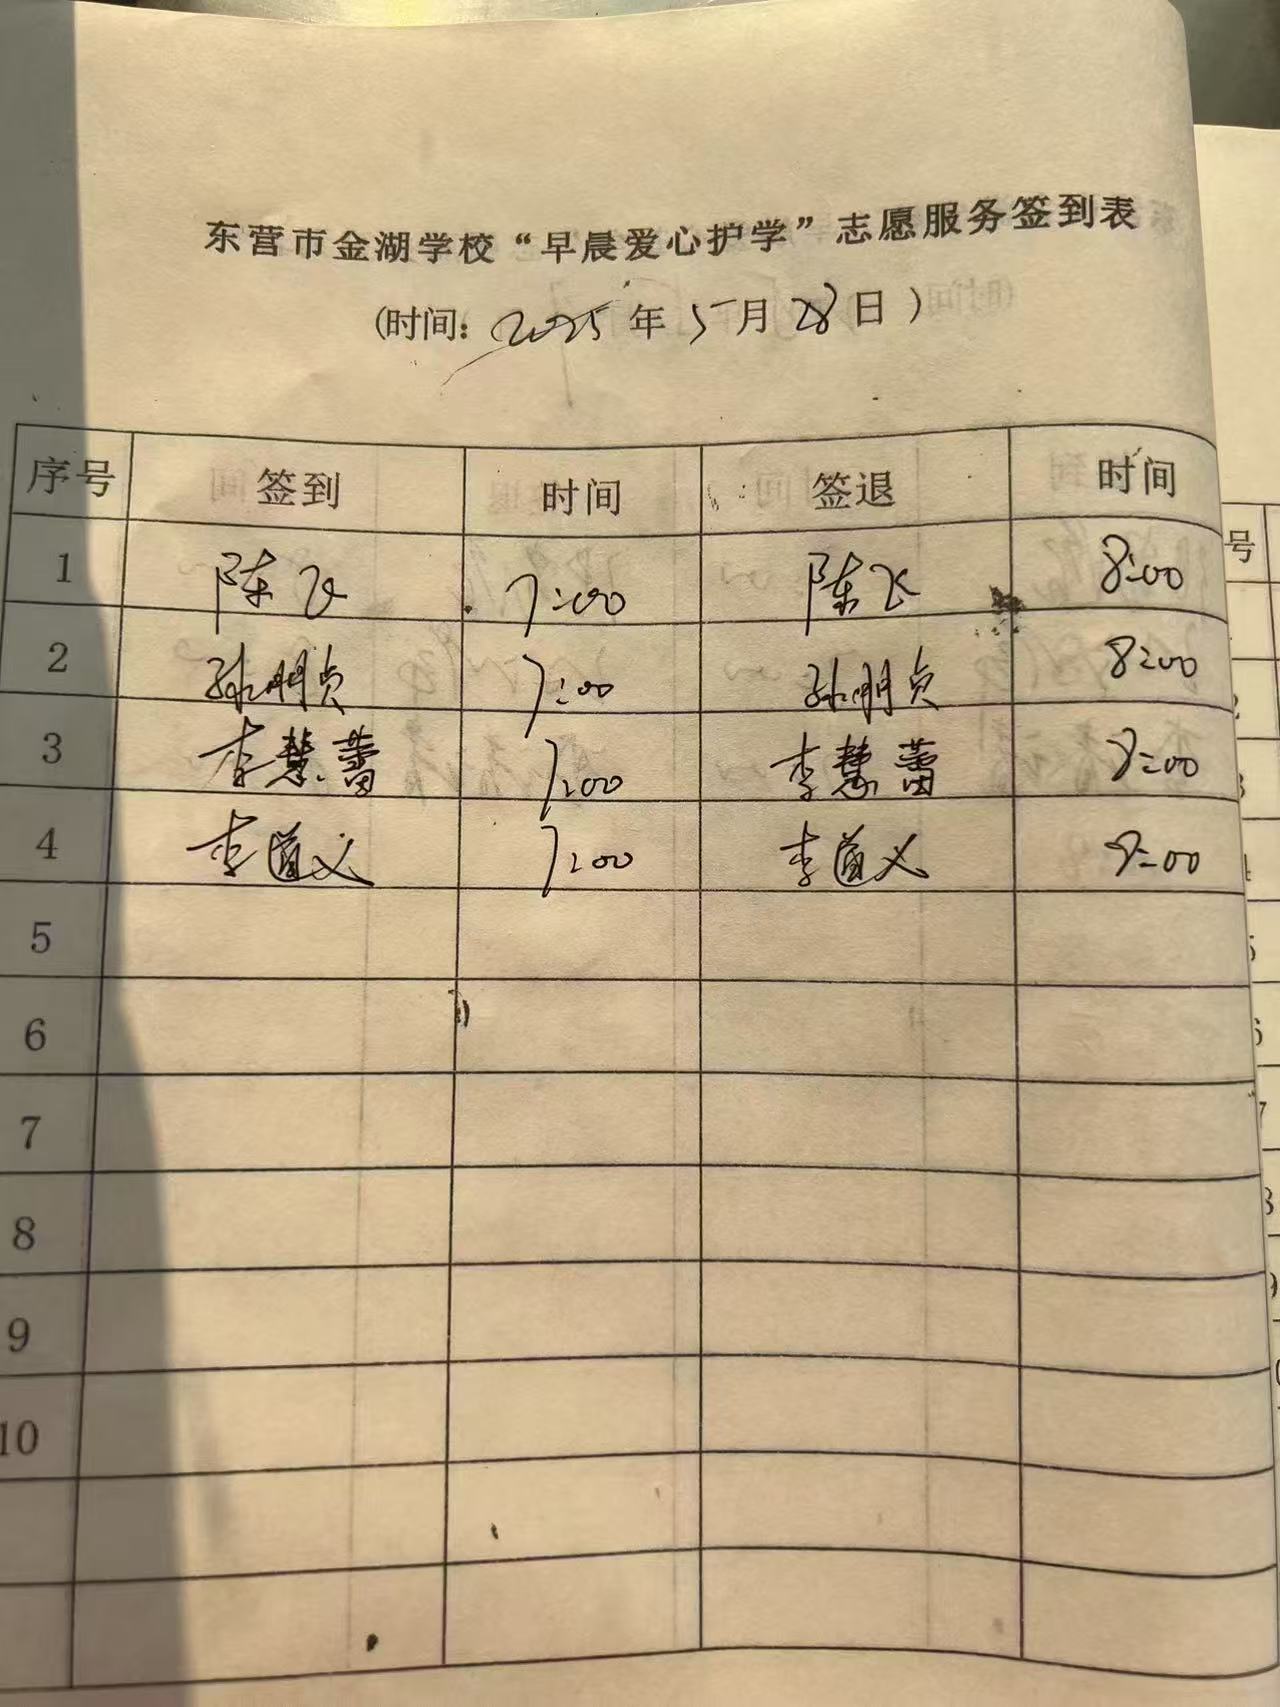 东营市金湖学校“早晨爱心护学”志愿服务签到表
(时间: 2025 年 5 月 28 日 )
序号 签到 时间 签退 时间
1 陈飞 7:00 陈飞 8:00
2 孙明贞 7:00 孙明贞 8:00
3 李慧蕾 7:00 李慧蕾 8:00
4 李道义 7:00 李道义 8:00
5
6
7
8
9
10
号